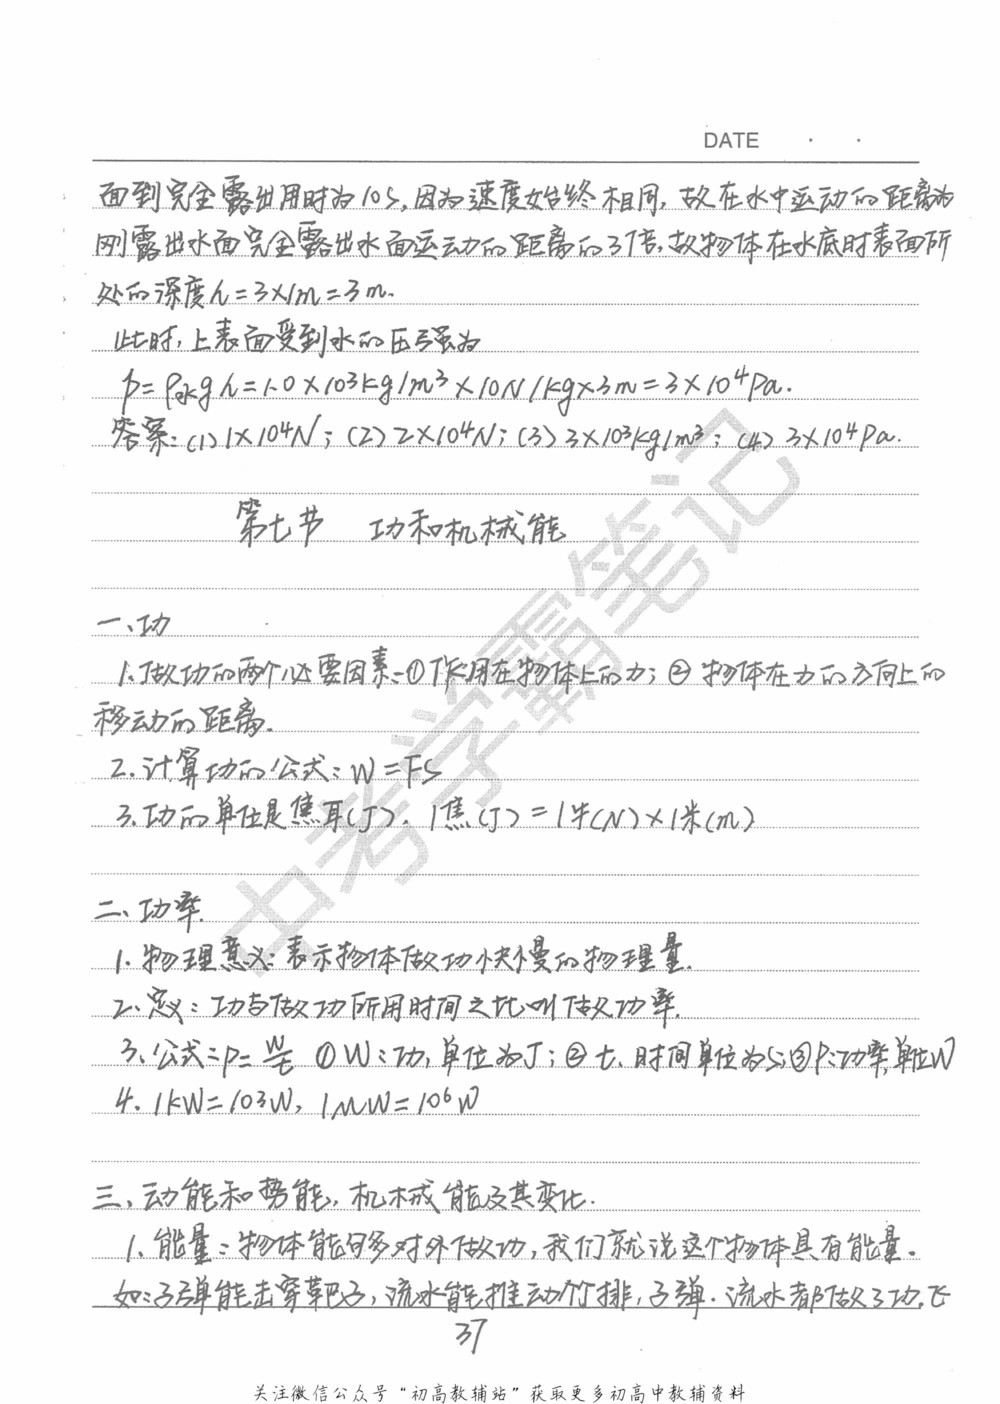 DATE · ·
面到完全露出用时为10s,因为速度始终相同,故在水中运动的距离为
刚露出水面完全露出水面运动的距离的3倍,故物体在水底时表面所
处的深度h=3×1m=3m.
此时,上表面受到水的压强为
p=ρ水gh=1.0×10³kg/m³×10N/kg×3m=3×10⁴Pa.
答案:(1)1×10⁴N;(2)2×10⁴N;(3)3×10³kg/m³;(4)3×10⁴Pa.
第七节 功和机械能
一、功
1.做功的两个必要因素:①作用在物体上的力;②物体在力的方向上的
移动的距离.
2.计算功的公式:W=FS
3.功的单位是焦耳(J).1焦(J)=1牛(N)×1米(m)
二、功率.
1.物理意义:表示物体做功快慢的物理量.
2.定义:功与做功所用时间之比叫做功率.
3.公式:P=W/t ①W:功,单位为J;②t、时间单位为s;③P:功率,单位W
4.1kW=10³W,1MW=10⁶W
三、动能和势能,机械能及其变化.
1.能量:物体能够对外做功,我们就说这个物体具有能量。
如:子弹能击穿靶子,流水能推动竹排,子弹.流水都做了功.飞
37
中考学霸笔记
关注微信公众号“初高教辅站”获取更多初高中教辅资料